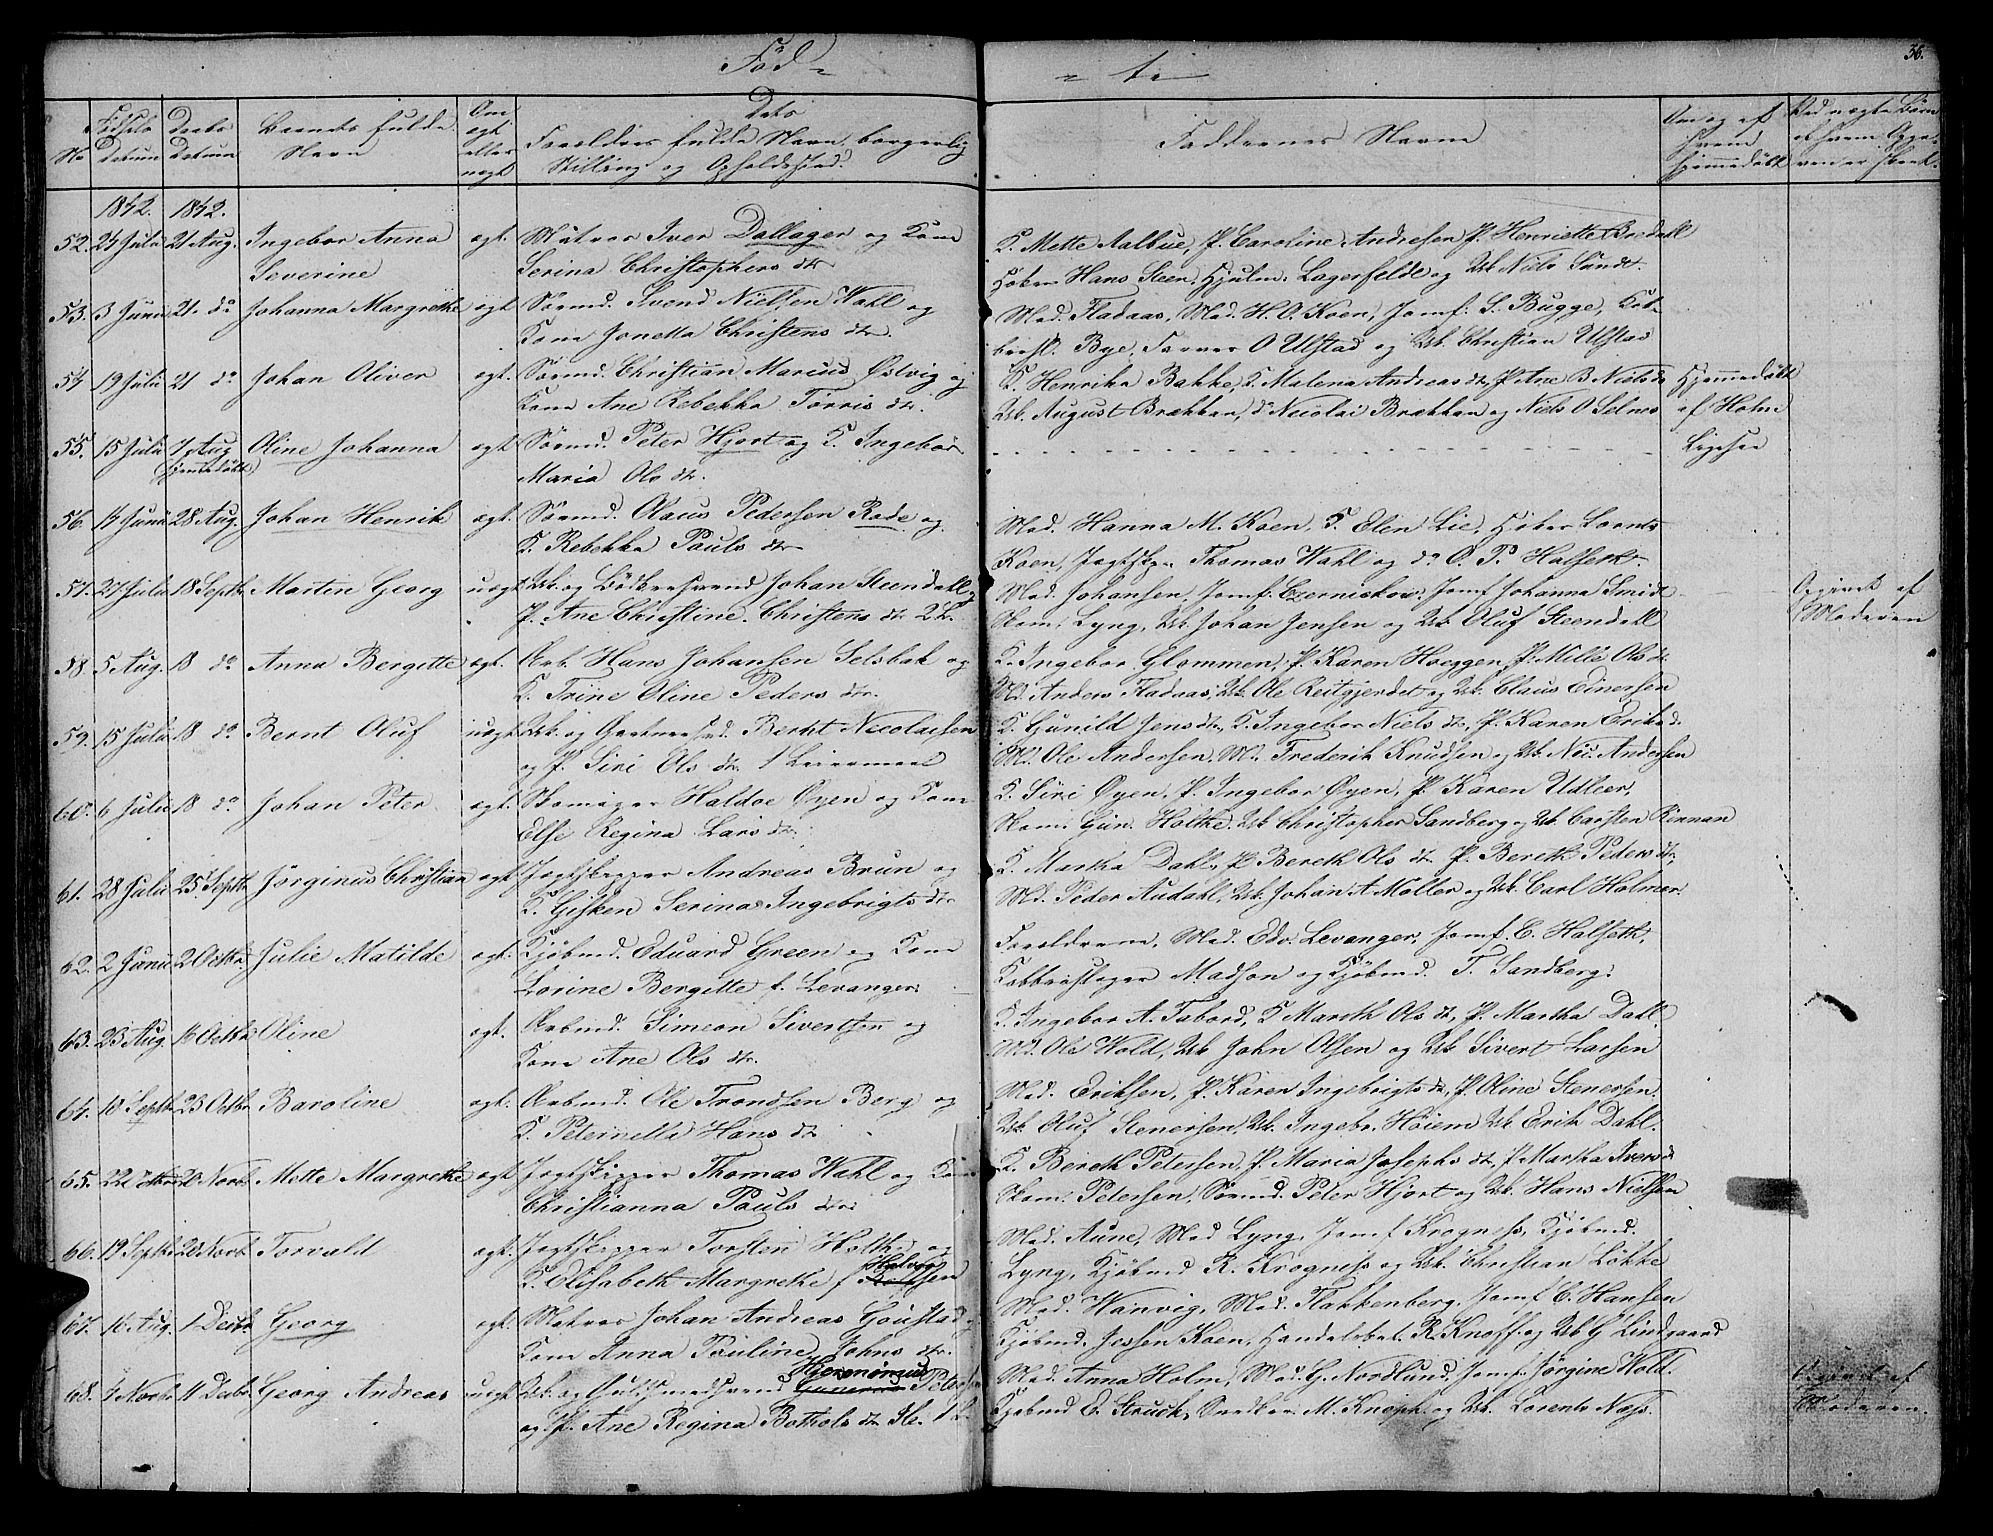 Fød-
-te
36.
No
Fødsels Datum
Daabs Datum
Barnets fulde Navn
Om ægt eller uægt
Dets Forældres fulde Navn, borgerlig Stilling og Opholdssted.
Faddernes Navne
Om og af hvem hjemmedøbt
1842. 1842.
52. 24 Juli 21 Aug. Ingebor Anna Severine ægt. Murer Iver Dallager og Kone Serina Christophers dtr
K. Mette Aalbue, P. Caroline Andresen P. Henriette Bredall
Høker Hans Steen, Hjulm. Lagerfelde og Uk. Niels Sundt.
53. 3 Junii 21. do Johanna Margrethe ægt Sømd. Svend Nielsen Wahl og Kone Jonetta Christens dtr.
Mad. Fladaas, Mad. H. O. Koen, Jomf. S. Bugge, Kobbersl. Bye, Farver O Ulstad og Uk. Christian Ulstad
54 19 Juli 21 do Johan Oliver ægt. Sømd. Christian Marcus Østvig og Kone Ane Rebekka Tørris dtr.
K. Henrika Bakke, K. Malena Andreas dtr, P. Ane B Niels d.
Uk. August Brækkan, do Nicolai Brækkan og Niels O Selnes
Hjemmedøbt af Holm
55. 15 Juli 7 Aug (hjemmedøbt) Oline Johanna ægt Sømd. Peter Hjort og K. Ingebor Maria Ols dtr.
Ligesaa
56. 14 Junii 28 Aug. Johan Henrik ægt. Sømd. Olaus Pedersen Rode og K. Rebekka Pauls dtr
Mad. Hanna M. Koen, K. Elen Lie, Høker Lorents
Koen, Jagtsk. Thomas Wahl og do O. P. Halseth.
57. 27 Julii 18 Septb. Martin Georg uægt Uk. og Bødkersvend Johan Steendall og P. Ane Christine Christens dtr 2 L.
Mad. Johansen, Jomf. Czernickow, Jomf Johanna Smidt
Skom. Lyng, Uk. Johan Jensen og Uk. Oluf Steendall
Opgivet af Moderen
58. 5 Aug. 18 do Anna Bergitte ægt. Arb. Hans Johansen Selsbak og K. Trine Oline Peders dtr.
K. Ingebor Glommen, P. Karen Hoeggen, P. Mille Ols dtr
Md. Anders Fladaas, Uk. Ole Reitgjerdet og Uk. Claus Einersen
59. 15 Julii 18 do Bernt Oluf uægt Uk. og Gartnersvd. Bernt Nicolaisen og P. Siri Ols dtr. 1 Leiermaal
K. Gunild Jens dtr, K. Ingebor Niels dtr, P. Karen Eriks d.
Md. Ole Andersen, Md. Frederik Knudsen og Uk. Nic. Andersen
60. 6 Julii 18 do Johan Peter ægt. Skomager Haldoe Øyen og Kone Else Regina Lars dtr.
K. Siri Øyen, P. Ingebor Øyen, P. Karen Udleer,
Skom. Gun. Holtke, Uk. Christopher Sandberg og Uk. Carsten Rennan
61. 28 Julii 25 Septb. Jörginus Christian ægt Jagtskipper Andreas Brun og K. Gisken Serina Ingebrigts dtr
K. Martha Dahl, P. Bereth Ols dtr P. Bereth Peders dtr,
Md. Peder Audahl, Uk. Johan A Møller og Uk. Carl Holmer
62. 2 Junii 2 Octbr. Julie Matilde ægt. Kjøbmd. Eduard Green og Kone Lorine Bergitte f. Levanger.
Forældrene, Mad. Edv. Levanger, Jomf. C. Halseth,
Kobberslager Madson og Kjøbmd. T. Sandberg.
63. 23 Aug. 16 Octbr Oline ægt. Arbmd. Simeon Sivertsen og Kone Ane Ols dtr.
K. Ingebor A. Tabord, K Mareth Ols dtr, P. Martha Dahl.
Md. Ole Wold, Uk John Olsen og Uk Sivert Larsen
64. 10 Septb 23 Octbr Baroline ægt. Arbmd. Ole Trondsen Berg og K. Peternella Hans dtr
Mad. Eriksen, P. Karen Ingebrigts dtr, P. Oline Stenersen
Uk. Oluf Stenersen, Uk. Ingebr. Høiem Uk Erik Dahl.
65. 22 Octbr 20 Novb. Mette Margrethe ægt Jagtskipper Thomas Wahl og Kone Christianna Pauls dtr.
K. Bereth Petersen, P. Maria Josephs dtr, P. Martha Ivers d
Skom. Petersen, Sømd. Peter Hjort og Uk. Hans Nielsen
66. 19 Septb. 20 Novb. Torvald ægt. Jagtskipper Torsten Holtke og K. Elisabeth Margrethe f Halvorsen
Mad. Aune, Mad Lyng, Jomf Krogness, Kjøbmd.
Lyng, Kjøbmd R. Krogness og Uk. Christian Løkke
67. 16 Aug. 1 Decbr. Georg ægt. Murer Johan Andreas Goustad og Kone Anna Pauline Johns dtr.
Mad. Wanvig, Mad. Flakkenberg, Jomf C. Hansen
Kjøbmd. Jessen Koen, Handelsbet. R. Knoff og Uk G Lindgaard
68. 4 Novbr 11 Decbr. Georg Andreas uægt Uk. og Guldsmedsvend Hieronimus Petersen og P. Ane Regina Bottols dtr. Sle. 1 L.
Mad. Anna Holm, Mad. G. Nordlund, Jomf. Jørgine Wold.
Kjøbmd E. Struck, Snedker M. Knoph. og Uk. Lorents Næss.
Opgivet af Moderen.